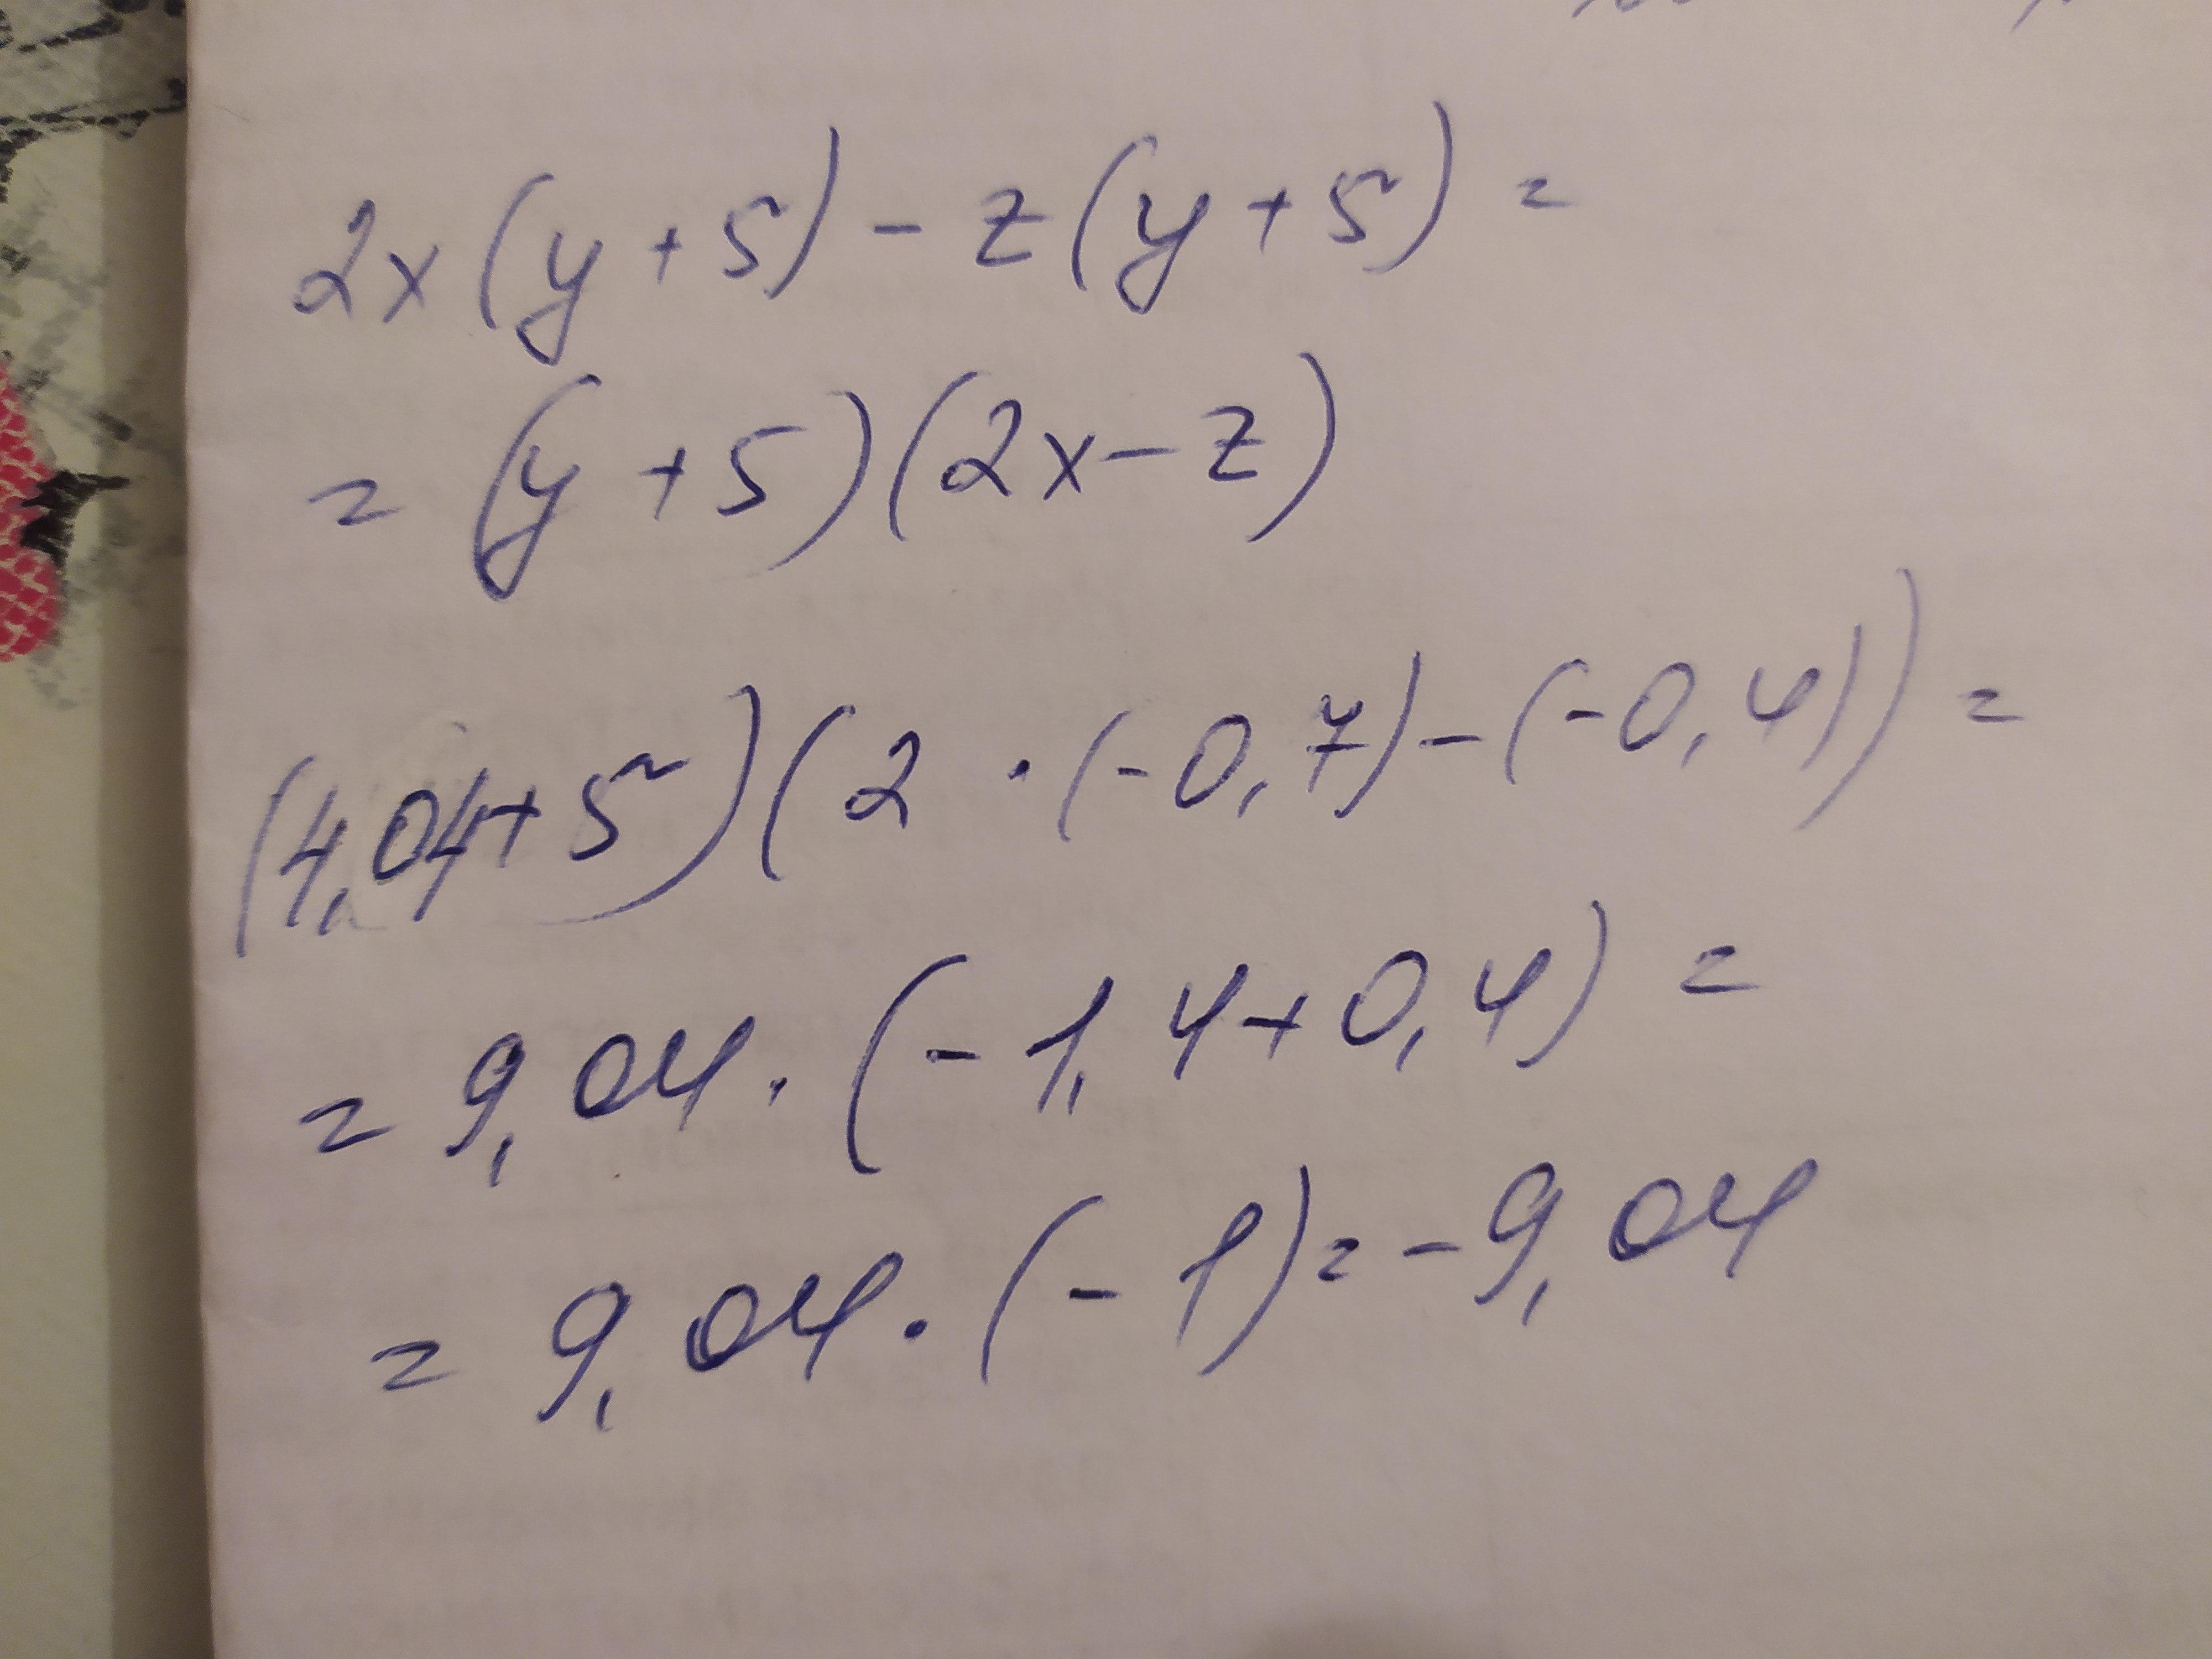 2x(y+5)-z(y+5)=
=(y+5)(2x-z)
(4,04+5)(2·(-0,7)-(-0,4))=
=9,04·(-1,4+0,4)=
=9,04·(-1)=-9,04